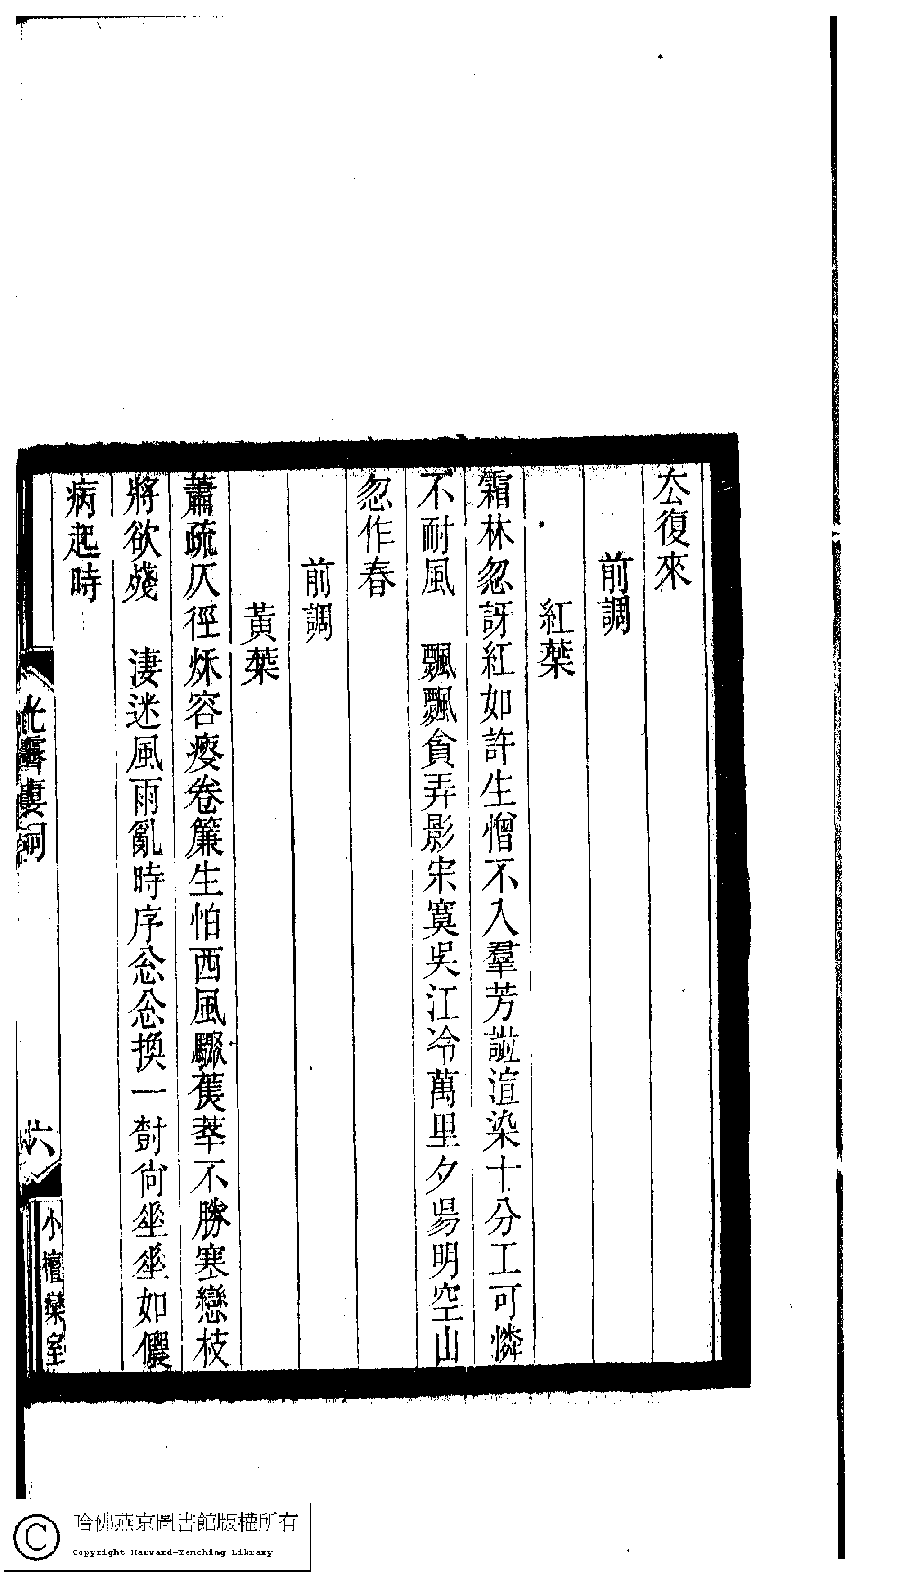 厺復來
前調
紅葉
霜林忽訝紅如許生憎不入羣芳譜渲染十分工可憐
不耐風　飄飄貪弄影宋寞吳江冷萬里夕昜明空山
忽作春
前調
黃葉
蕭疏仄徑秌容瘦卷簾生怕西風驟蕉萃不勝寒戀枝
將欲殘　淒迷風雨亂時序怱怱換一尌尙𡍮𡍮如儂
病起時
詞
六
小檀欒室
哈佛燕京圖書館版權所有
Copyright Harvard-Yenching Library